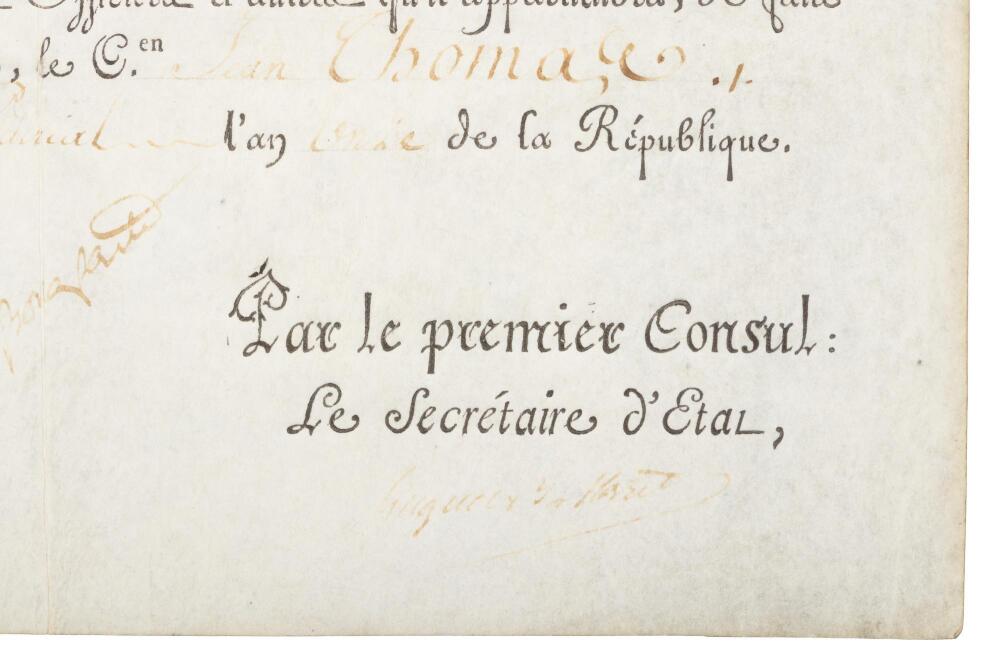 et autres qu'il appartiendra, de faire
, le C.en Jean Thomas
l'an onze de la République.
Bonaparte
Par le premier Consul:
Le Secrétaire d'Etat,
Hugues B. Maret